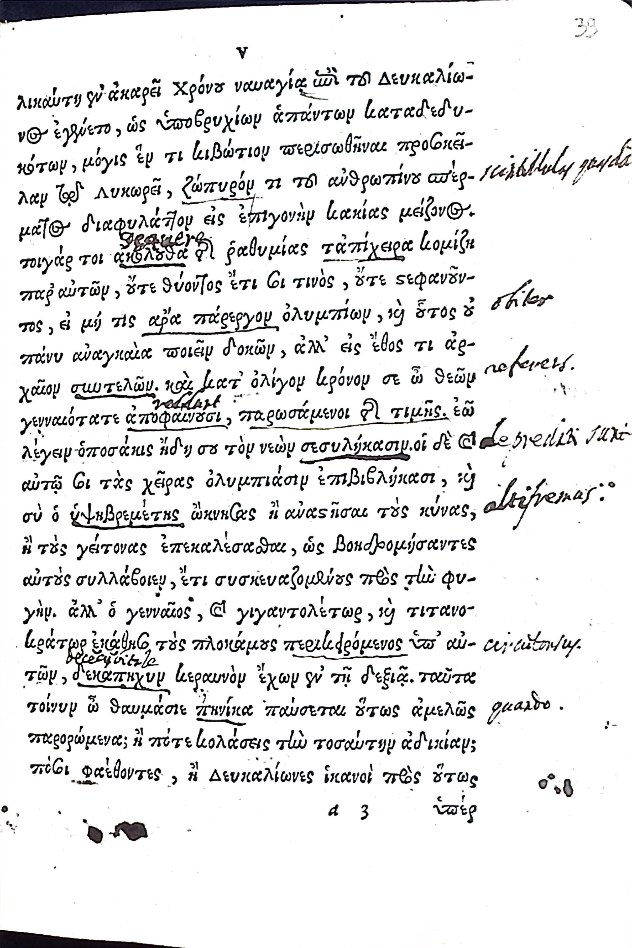 39
V
λικαύτη ἐν ἀκαρεῖ χρόνου ναυαγία ἐπὶ τοῦ Δευκαλίω-
νος ἐγένετο, ὡς ὑποβρυχίων ἁπάντων καταδεδυ-
κότων, μόγις ἕν τι κιβώτιον περισωθῆναι προσκεῖ-
λαν τῷ Λυκωρεῖ, ζώπυρόν τι τοῦ ἀνθρωπίνου σπέρ-
scintillulas quasdā
ματος διαφυλάττον εἰς ἐπιγονὴν κακίας μείζονος.
sequere
τοιγάρ τοι ἀκόλουθα τῆς ῥαθυμίας τἀπίχειρα κομίζῃ
παρ' αὐτῶν, οὔτε θύοντος ἔτι σοι τινὸς, οὔτε στεφανοῦν-
τος, εἰ μή τις ἄρα πάρεργον ὀλυμπίων, καὶ οὗτος οὐ
obiter
πάνυ ἀναγκαῖα ποιεῖν δοκῶν, ἀλλ' εἰς ἔθος τι ἀρ-
χαῖον συντελῶν. καὶ κατ' ὀλίγον κρόνον σε ὦ θεῶν
referens.
reddūt
γενναιότατε ἀποφαίνουσι, παρωσάμενοι τῆς τιμῆς. ἐῶ
λέγειν ὁποσάκις ἤδη σου τὸν νεὼν σεσυλήκασιν. οἱ δὲ καὶ
depredati sunt
αὐτῷ σοι τὰς χεῖρας ὀλυμπιάσιν ἐπιβιβλήκασι, καὶ
σὺ ὁ ὑψιβρεμέτης ὤκνησας ἢ ἀναστῆσαι τοὺς κύνας,
altifremas:
ἢ τοὺς γείτονας ἐπεκαλέσασθαι, ὡς βοηδρομήσαντες
αὐτοὺς συλλάβοιεν, ἔτι συσκευαζομένους πρὸς τὴν φυ-
γήν. ἀλλ' ὁ γενναῖος, καὶ γιγαντολέτωρ, καὶ τιτανο-
κράτωρ ἐκάθησο τοὺς πλοκάμους περικειρόμενος ὑπ' αὐ-
circūtonsus.
τῶν, δεκάπηχυν κεραυνὸν ἔχων ἐν τῇ δεξιᾷ. ταῦτα
τοίνυν ὦ θαυμάσιε πηνίκα παύσεται οὕτως ἀμελῶς
quando.
παρορώμενα; ἢ πότε κολάσεις τὴν τοσαύτην ἀδικίαν;
πόσοι φαέθοντες, ἢ Δευκαλίωνες ἱκανοὶ πρὸς οὕτως
a 3 ὑπέρ